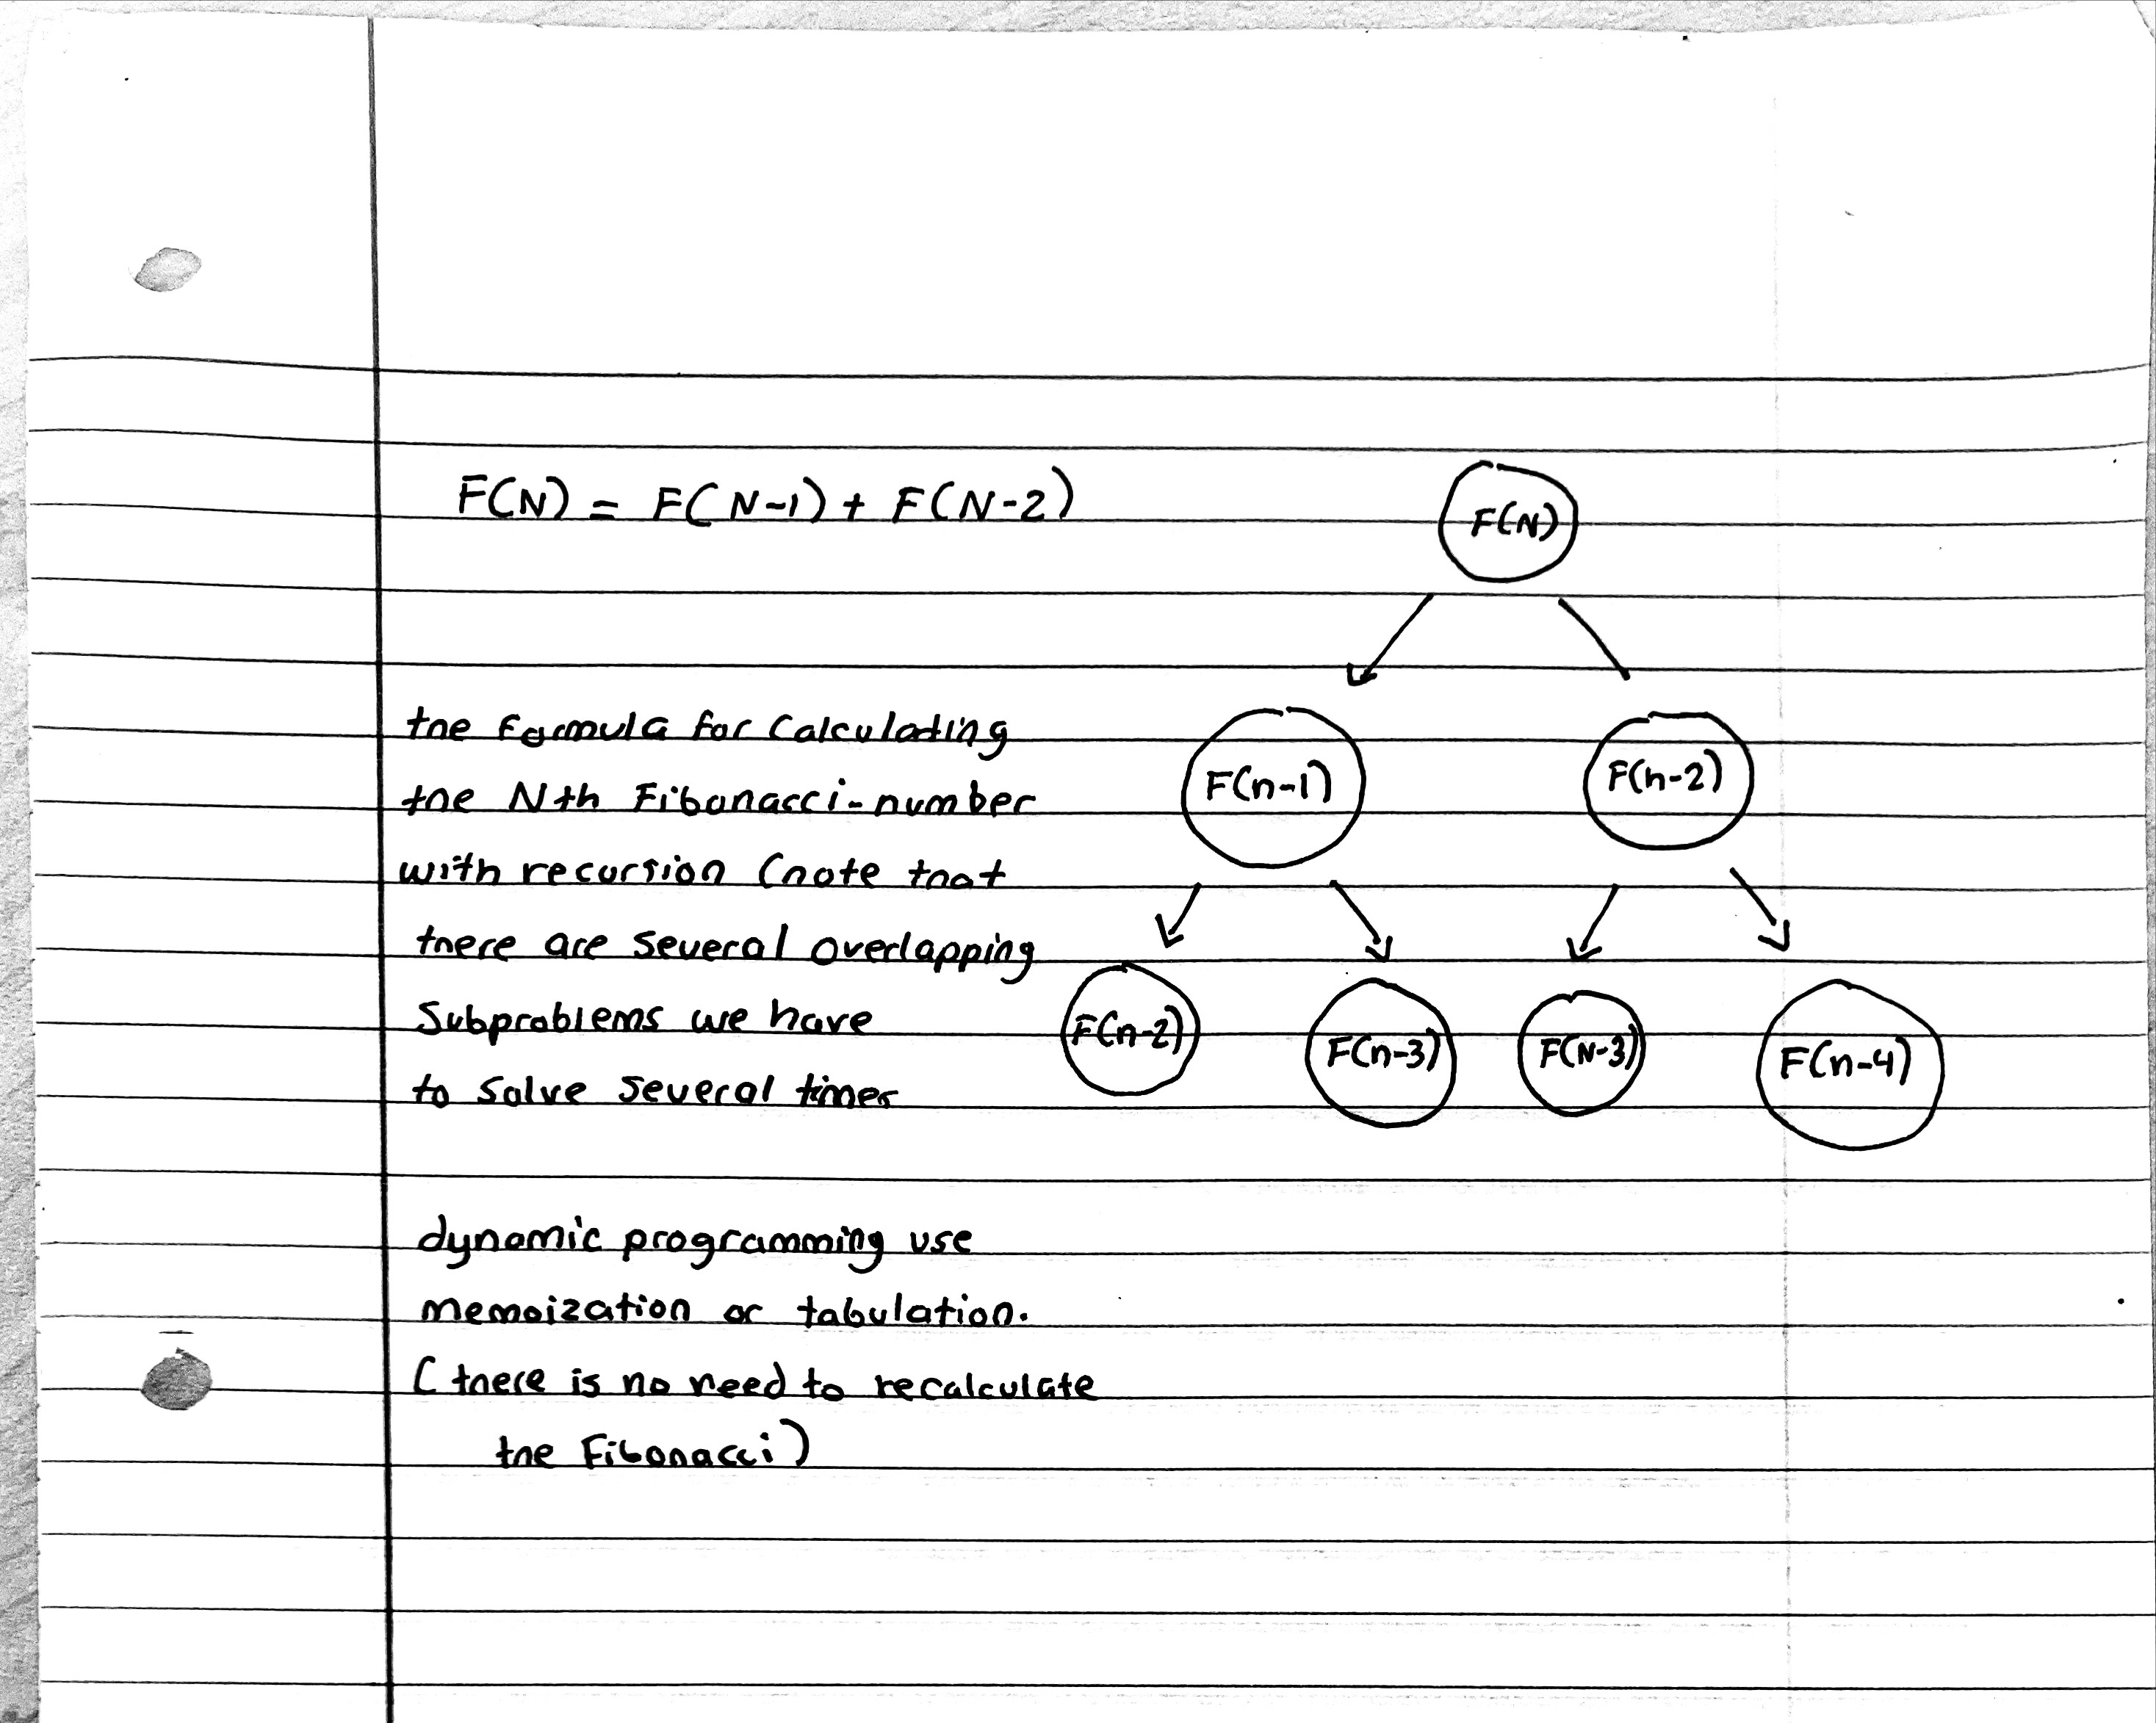 F(N) = F(N-1) + F(N-2)
F(N)
F(n-1) F(n-2)
F(n-2) F(n-3) F(N-3) F(n-4)
the formula for Calculating
the Nth Fibonacci-number
with recursion (note that
there are several overlapping
Subproblems we have
to solve several times
dynamic programming use
memoization or tabulation.
(there is no need to recalculate
the Fibonacci)